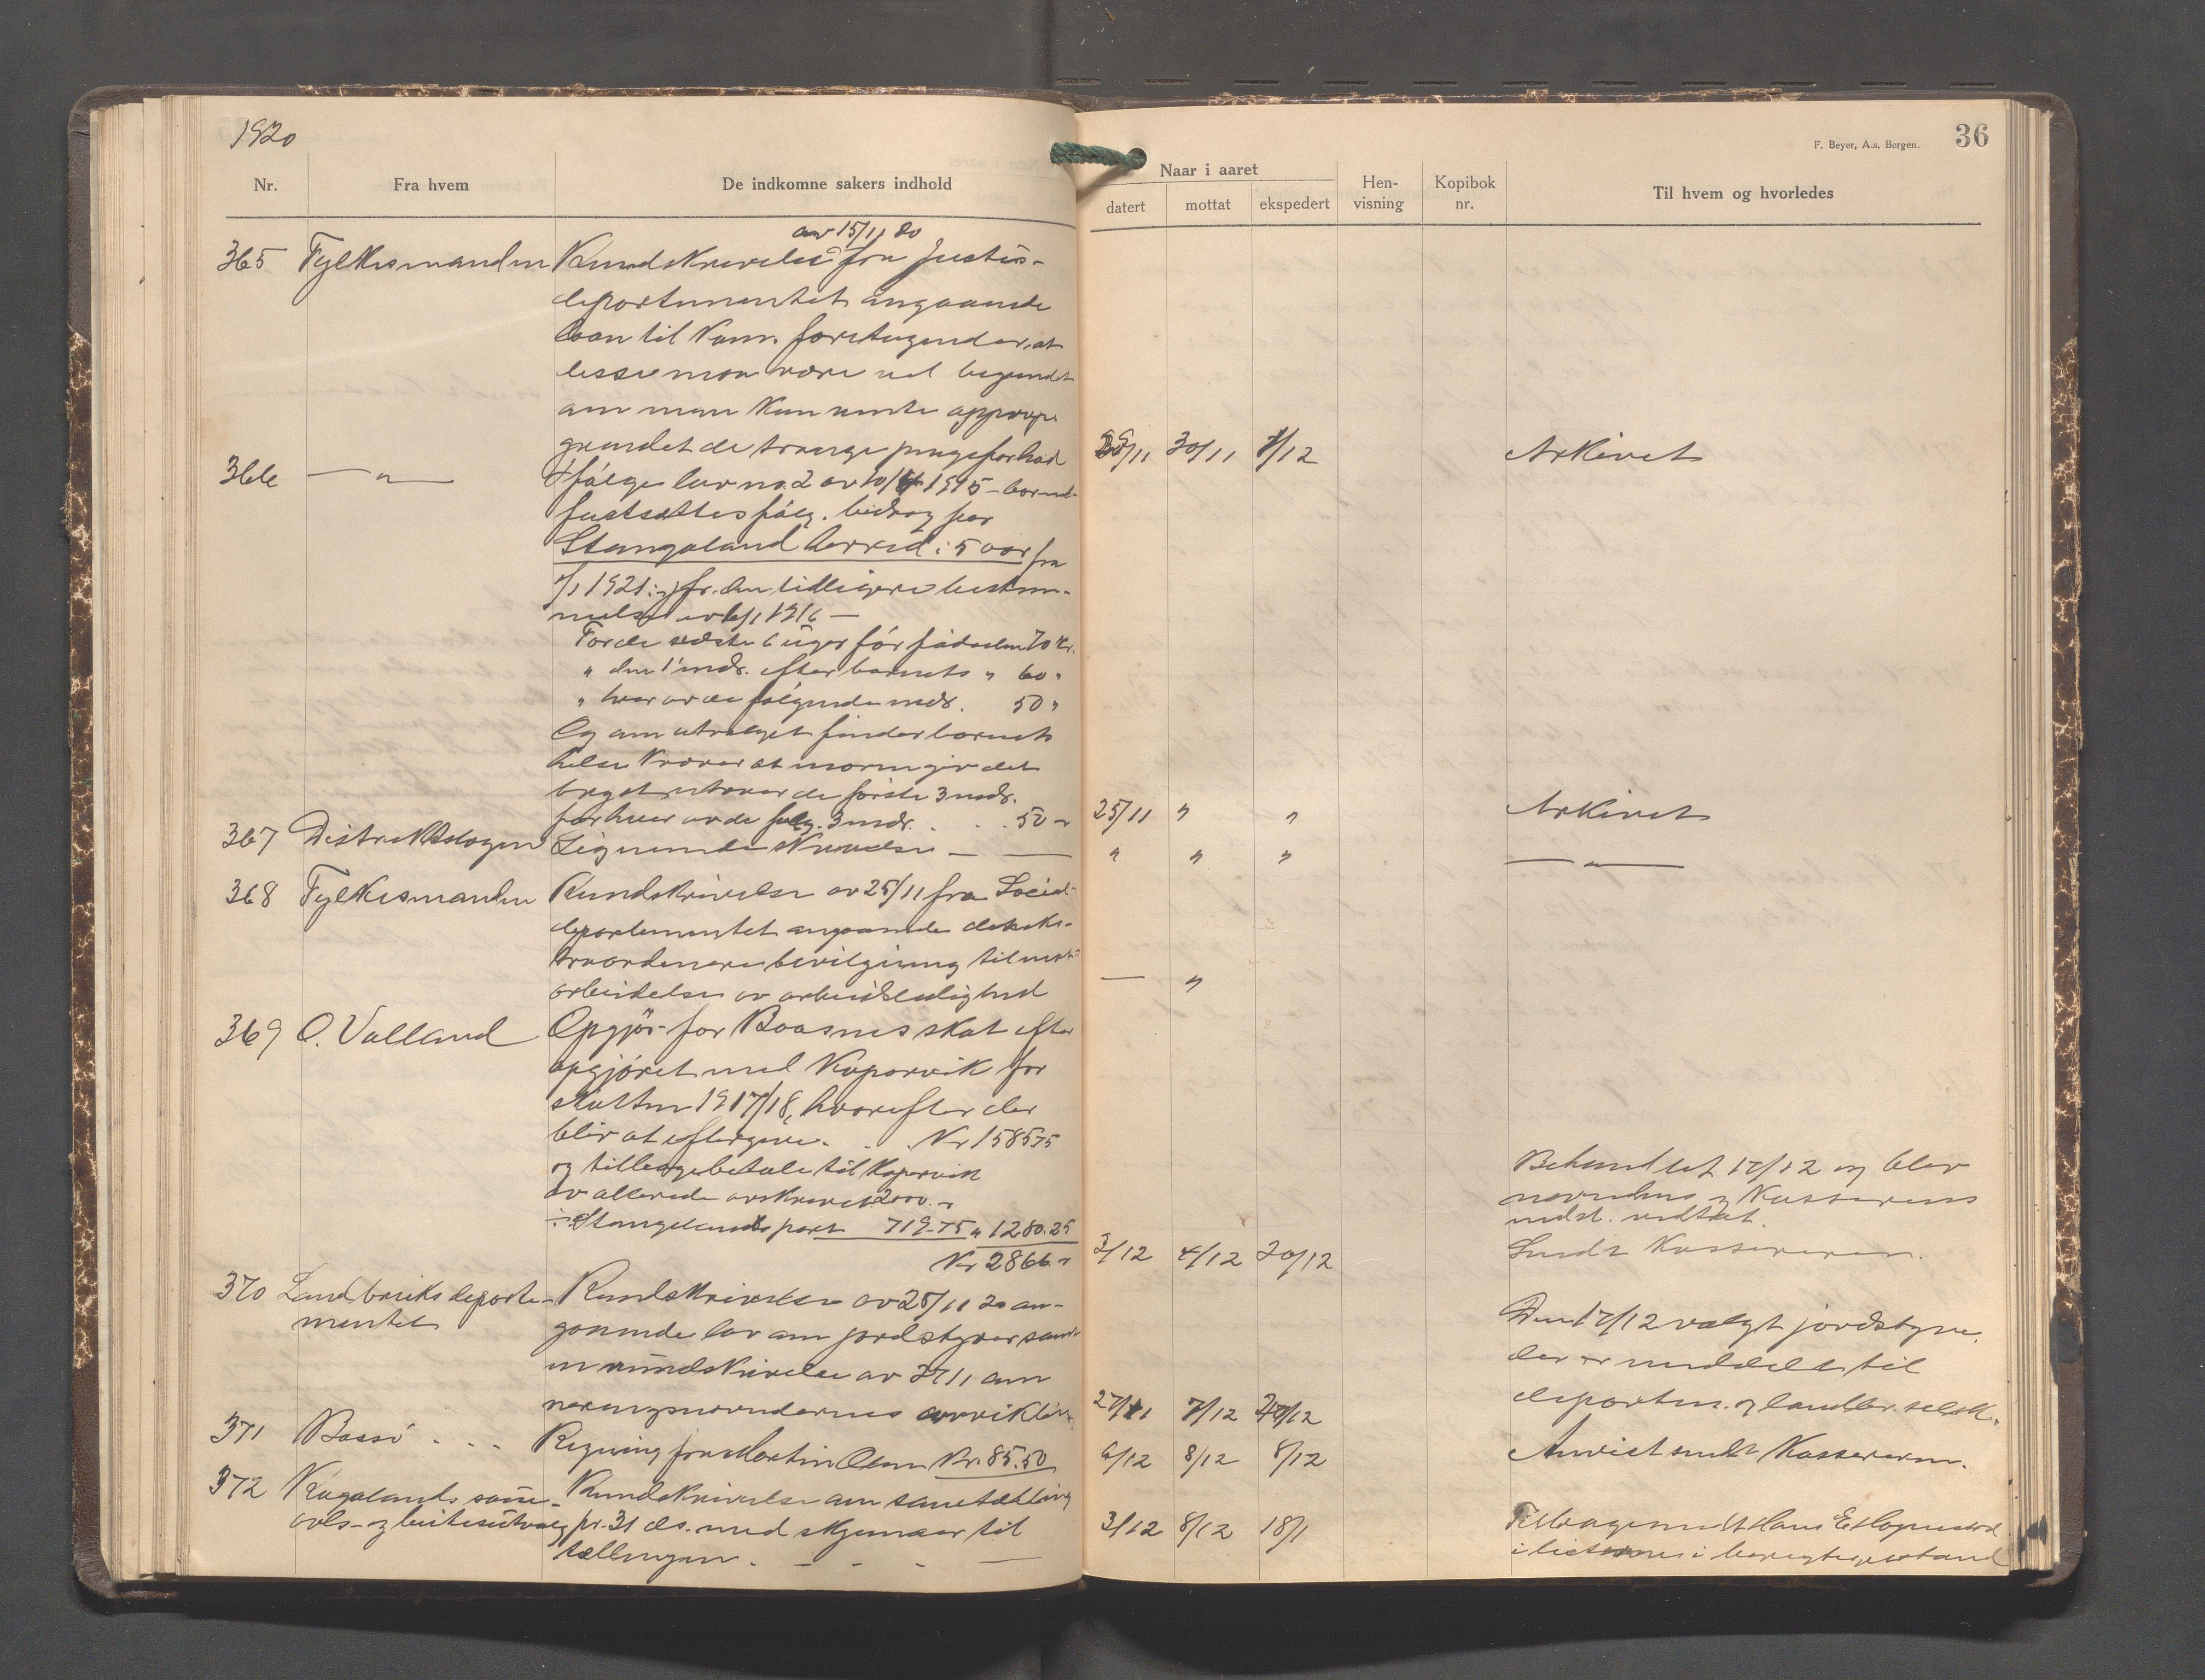 1920
36
F. Beyer, A.s, Bergen.
Nr.
Fra hvem
De indkomne sakers indhold
Naar i aaret
datert
mottat
ekspedert
Hen-
visning
Kopibok
nr.
Til hvem og hvorledes
av 15/11 20
365 Fylkesmanden Rundskrivelse fra Justis-
departementet angaaende
laan til kom. foretagender, at
disse maa være vel begrundet
om man kan vente approp.
grundet de trange pengeforhold 30/11 1/12 Arkivet
366 — " — Ifølge lov no. 2 av 10/4 1915 -
fastsættes følg. bidrag for
Stangaland herred i 5 aar fra
1/1 1921: jfr. den tidligere bestem-
melse av 1/1 1916 —
For de sidste 6 uger før fødselen 70 kr.
" den 1' mdr. efter barnets " 60 "
" hver av de følgende mdr. 50 "
Og om utvalget finder barnets
helse kræver at moren gir det
bryst utover de første 3 mdr.
for hver av de følg. 3 mdr. . . 50 " 25/11 " " Arkivet
367 Distriktslægen Lignende skrivelse — — " " " — " —
368 Fylkesmanden Rundskrivelse av 25/11 fra Social-
departementet angaaende den eks-
traordinære bevilgning til mot-
arbeidelse av arbeidsledighed — "
369 O. Valland Opgjør for Boasnes skat efter
opgjøret med Kopervik for
skatten 1917/18, hvorefter der
blir at eftergive . . Kr 1585.75
og tilbagebetale til Kopervik
av allerede avskrevet 2000. "
÷ Stangelands part 719.75 " 1280.25
Kr 2866 "
3/12 4/12 20/12
Behandlet 17/12 og blev
nevndens og Kassererens
indst. vedtat.
Sendt Kassereren.
370 Landbruksdeparte-
mentet
Rundskrivelse av 25/11 20 an-
gaaende lov om jordstyrer samt
en rundskrivelse av 27/11 om
næringsnevndernes avvikling 27/11 7/12 20/12
Den 17/12 valgt jordstyre.
der er meddelt til
departem. og landbr. selsk.
371 Bassø . . . Regning fra Martin Olsen Kr. 85.50 6/12 8/12 8/12 Anvist sendt Kassereren.
372 Rogalands saue-
avls- og beitesutvalg
Rundskrivelse om sauetælling
pr. 31 ds. med skjemaer til
tællingen. — - - — 3/12 8/12 18/1
Tilbagesendt Hans E.